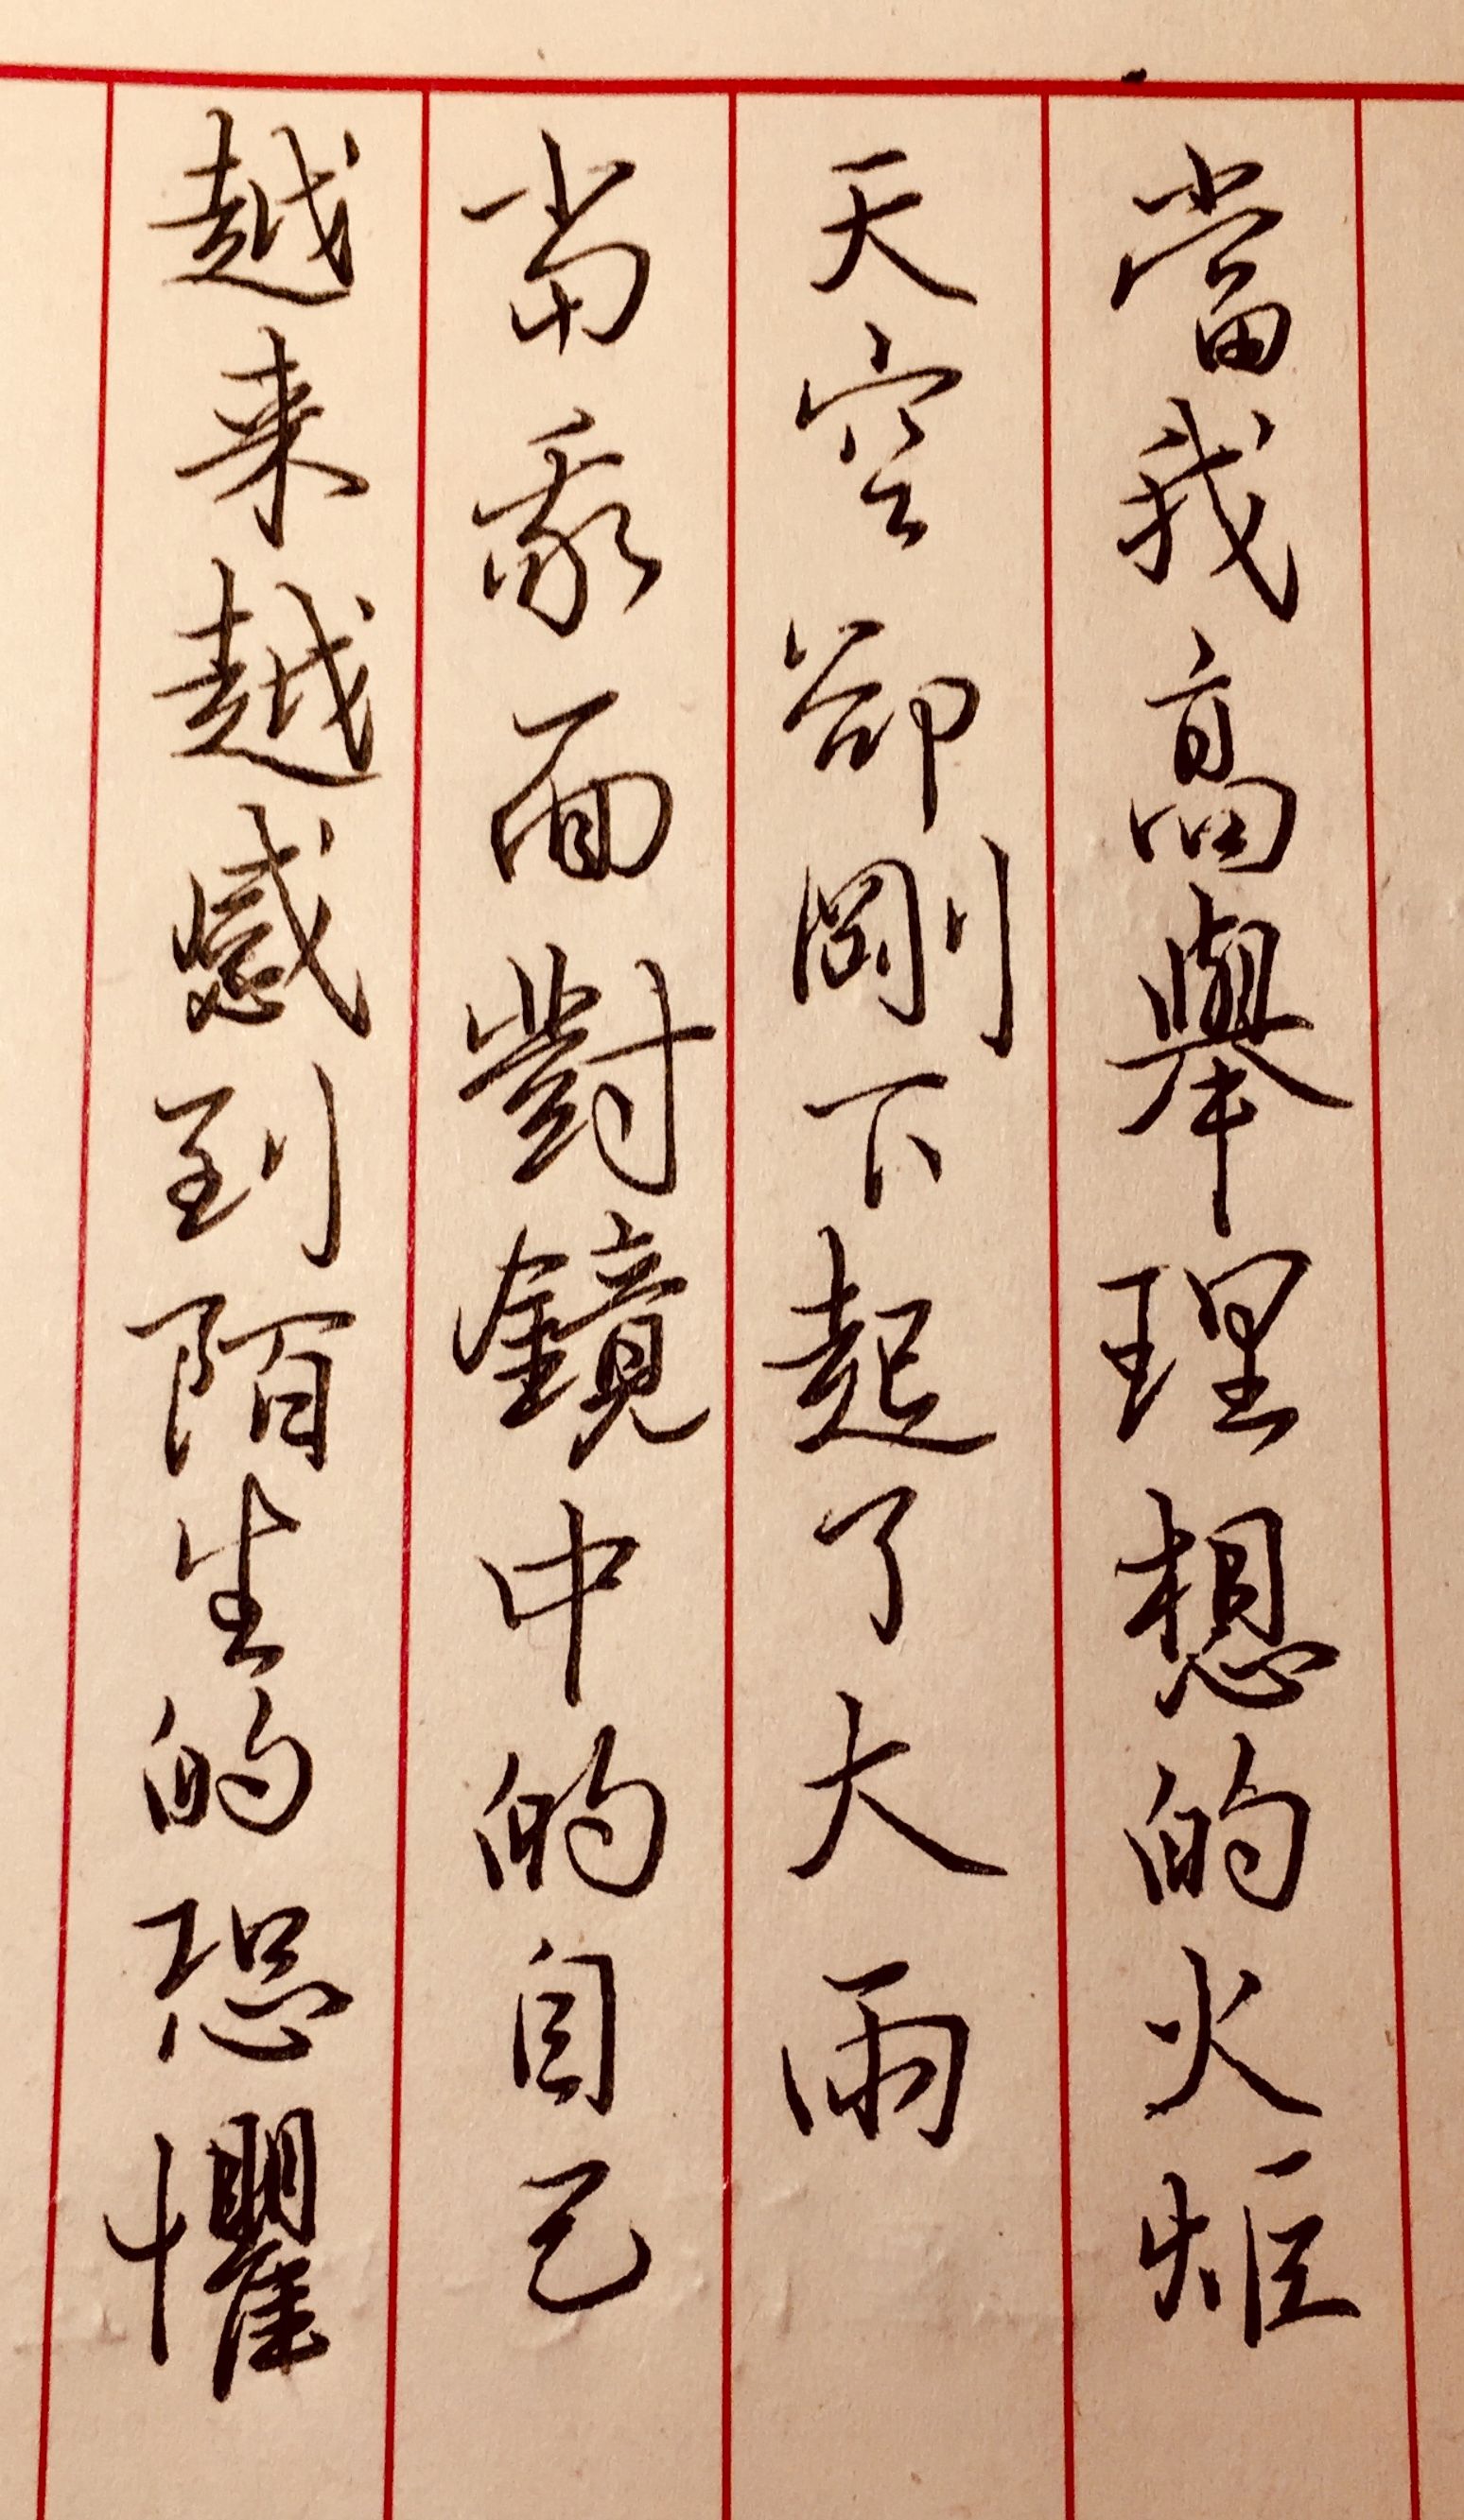 當我高舉理想的火炬
天空卻剛下起了大雨
當我面對鏡中的自己
越来越感到陌生的恐懼